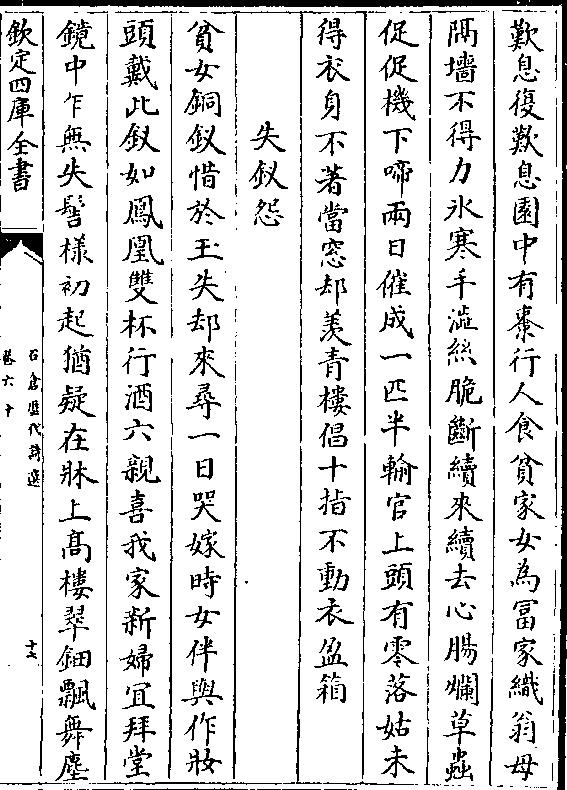 歎息復歎息園中有棗行人食貧家女為富家織翁母
隔墻不得力水寒手澁絲脆斷續來續去心腸爛草蟲
促促機下啼兩日催成一匹半輸官上頭有零落姑未
得衣身不著當窓却羡青樓倡十指不動衣盈箱
失釵怨
貧女銅釵惜於玉失却來尋一日哭嫁時女伴與作妝
頭戴此釵如鳳凰雙杯行酒六親喜我家新婦宜拜堂
鏡中乍無失髻樣初起猶疑在牀上高樓翠鈿飄舞塵
欽定四庫全書
石倉歷代詩選
卷六十